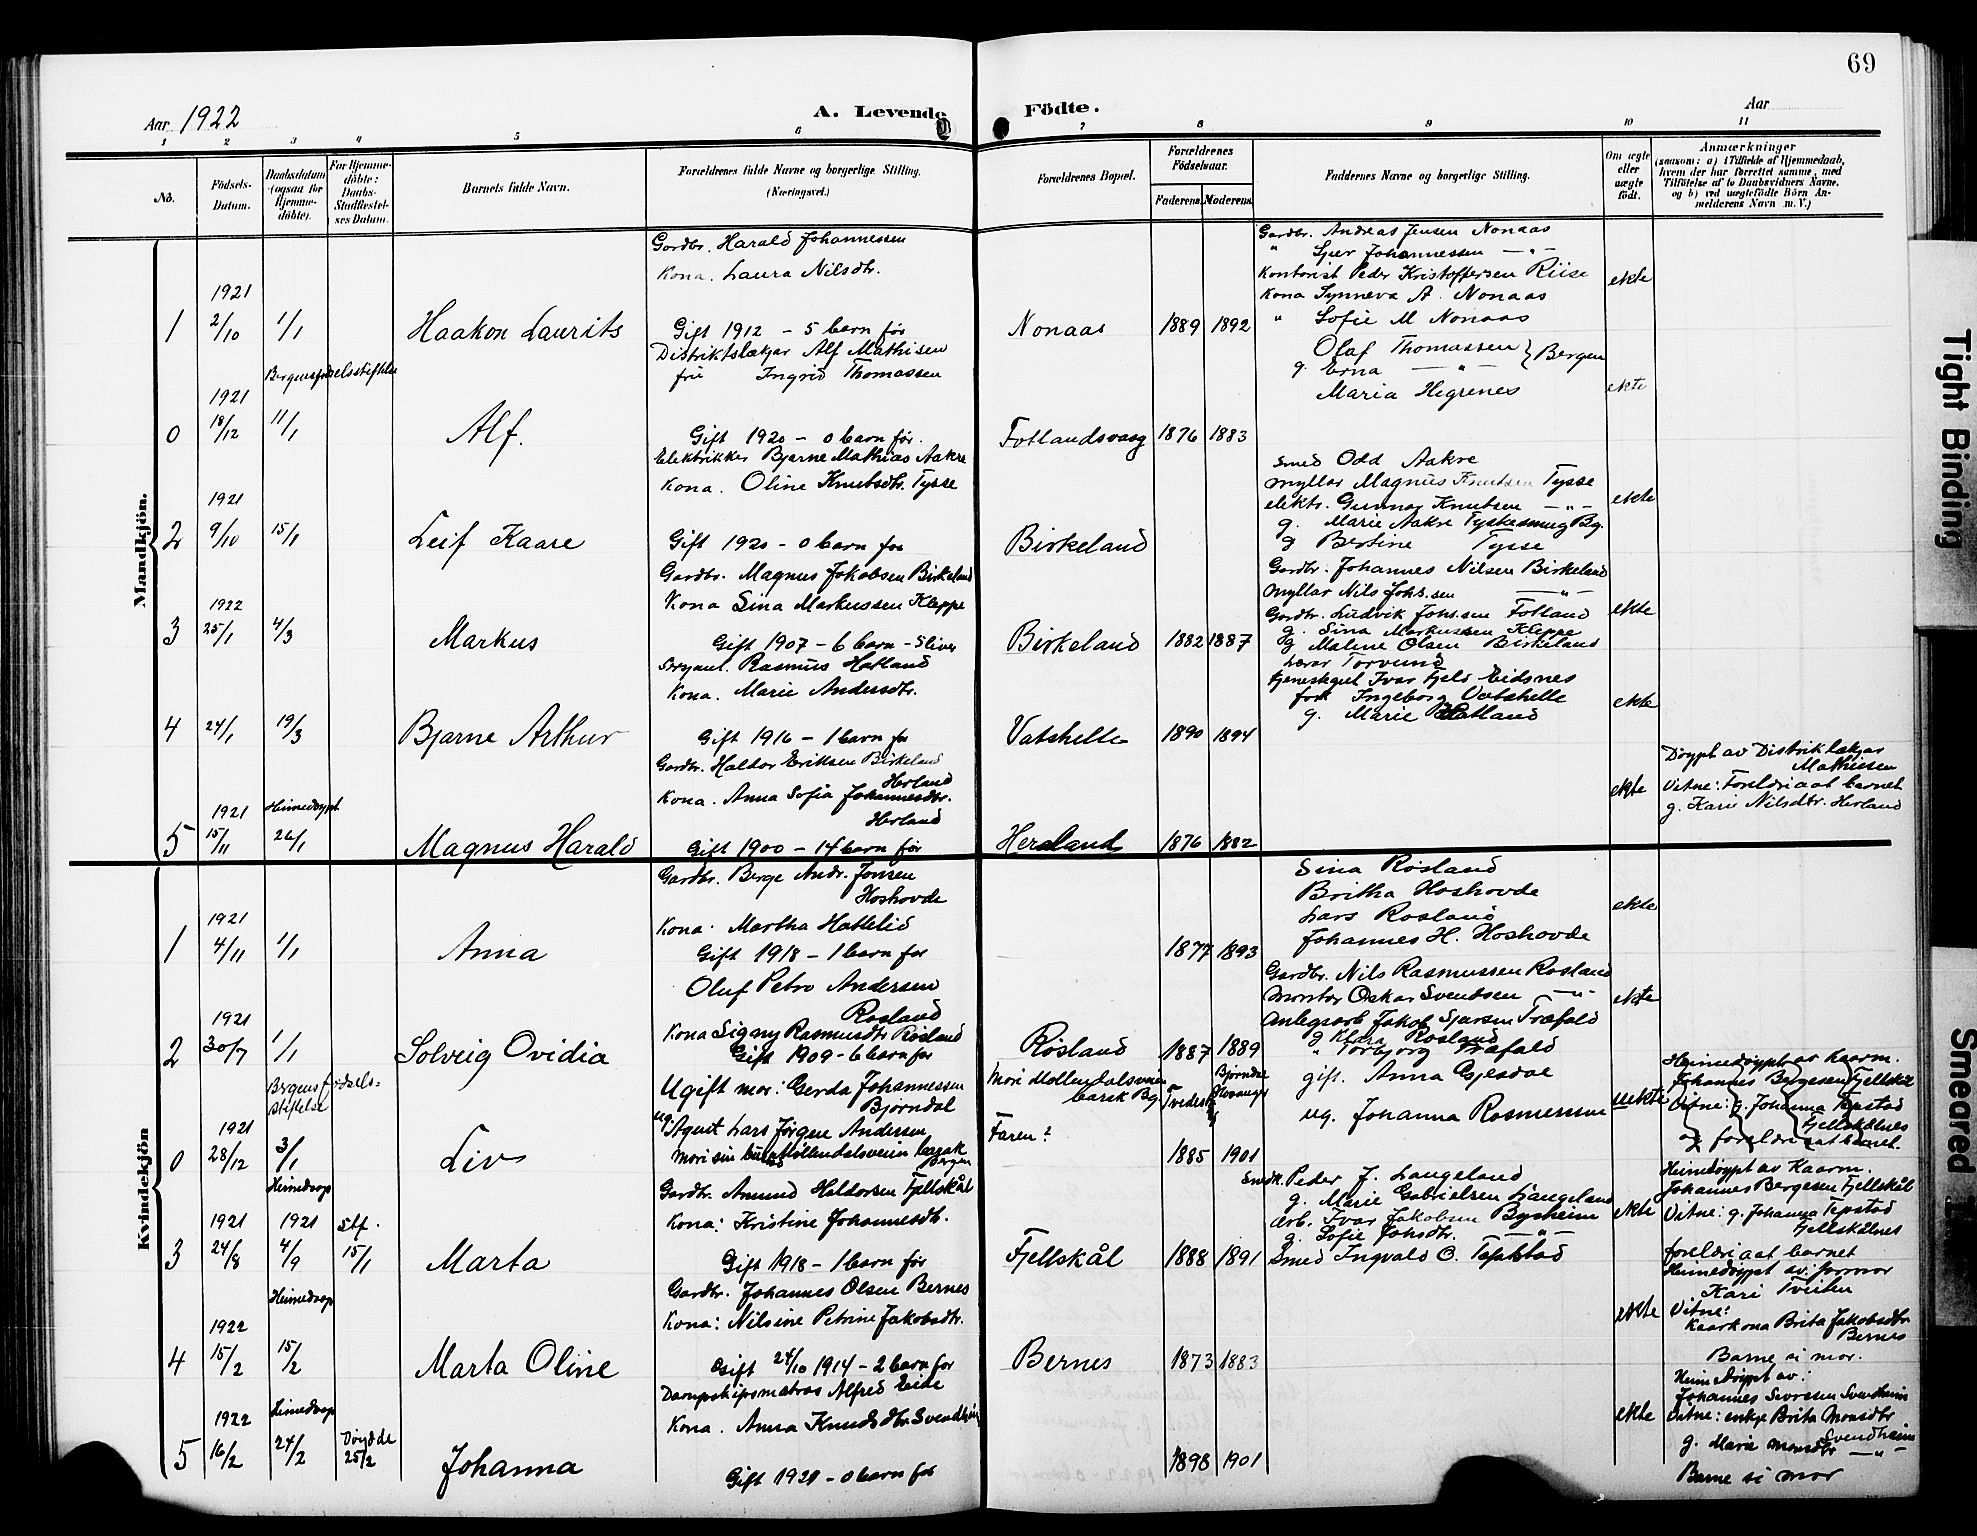 69
Aar 1922
A. Levende Födte.
Aar
1 2 3 4 5 6 7 8 9 10 11
No.
Födsels-Datum.
Daabsdatum (ogsaa for Hjemme-döbte).
For Hjemme-döbte: Daabs-Stadfæstel-ses Datum.
Barnets fulde Navn.
Forældrenes fulde Navne og borgerlige Stilling. (Næringsvei.)
Forældrenes Bopæl.
Forældrenes Födselsaar.
Faderens. Moderens.
Faddernes Navne og borgerlige Stilling.
Om ægte eller uægte födt.
Anmærkninger
(saasom: a) i Tilfælde af Hjemmedaab, hvem der har forrettet samme, med Tilföielse af to Daabsvidners Navne, og b) ved uægtefödte Börn An-melderens Navn m. V.)
Mandkjön.
1
1921
2/10
1/1
Haakon Laurits
Gardbr. Harald Johannessen
Kona. Laura Nilsdtr.
Gift 1912 – 5 barn før
Nonaas
1889 1892
Gardbr. Andreas Jensen Nonaas
" Sjur Johannessen — " —
Kontorist Peder Kristoffersen Riise
Kona Synneva A. Nonaas
" Sofie M Nonaas
ekte
0
1921
18/12
Bergens fødselsstiftelse
11/1
Alf.
Distriktslækjar Alf Mathisen
fru Ingrid Thomassen
Gift 1920 – 0 barn før.
Fotlandsvaag
1876 1883
Olaf Thomassen } Bergen
g. Erna — " —
Maria Hegrenes
ekte
2
1921
9/10
15/1
Leif Kaare
Elektrikker Bjarne Mathias Aakre
Kona. Oline Knutsdtr. Tysse
Gift 1920 – 0 barn før
Birkeland
Smed Odd Aakre
Myllar Magnus Knutsen Tysse
elektr. Gunnar Knutsen — " —
g. Marie Aakre Tyskesmug Bg.
g Bertine Tysse
ekte
3
1922
25/1
4/3
Markus
Gardbr. Magnus Jakobsen Birkeland
Kona Sina Markussen Kleppe
Gift 1907 – 6 barn – 5 liver
Birkeland
1882 1887
Gardbr. Johannes Nilsen Birkeland
Myllar Nils Johs.sen — " —
Gardbr. Ludvik Johs.sen Fotland
g. Sina Markussen Kleppe
g Maline Olsen Birkeland
ekte
4
24/1
19/3
Bjarne Arthur
Rasmus Hatland
Kona. Marie Andersdtr.
Gift 1916 – 1 barn før
Vatshelle
1890 1894
Lærar Torvund
Ivar Fjeld Eidsnes
Ingeborg Vatshelle
g. Marie Hatland
ekte
5
1921
15/11
Heimedøypt
26/1
Magnus Harald
Gardbr. Haldor Eriksen Birkeland
Herland
Kona. Anna Sofia Johannesdtr.
Herland
Gift 1900 – 14 barn før
Herland
1876 1882
ekte
Døypt av Distriktlækjar
Mathiesen
Vitne: Foreldri aat barnet
g. Kari Nilsdtr. Herland
Kvindekjön
1
1921
4/11
1/1
Anna
Gardbr. Berge Andr. Jonsen
Hoshovde
Kona. Martha Hattelid
Gift 1918 – 1 barn før
1877 1893
Sina Røsland
Britha Hoshovde
Lars Rosland
Johannes H. Hoshovde
ekte
2
1921
30/7
1/1
Solveig Ovidia
Oluf Petro Andersen
Rosland
Kona Signy Rasmusdtr Røsland
Gift 1909 – 6 barn før
Røsland
1887 1889
Gardbr. Nils Rasmussen Rosland
Montør Oskar Svendsen — " —
Anlegsarb. Jakob Sjursen Træfald
g Klara Rosland
" Torbjorg Træfald
ekte
0
1921
28/12
Bergens fødsels=
stiftelse
3/1
Liv
Ugift mor: Gerda Johannessen
Bjørndal
ug. Agent Lars Jørgen Andersen
Mor: Møllendalsveien
barak Bg.
Faren?
1885 1901
gift. Anna Gjesdal
ug. Johanna Rasmussen
uekte
Heimedøypt av Kaarm.
Johannes Bergesen Fjellskål
Vitne: g. Johanna Tepstad
Fjellskålnes
og foreldri aat barnet.
3
1921
24/8
Heimedøop
1921
4/9
Stf.
15/1
Marta
Gardbr. Amund Haldorsen Fjellskål
Kona: Kristine Johannesdtr.
Gift 1918 – 1 barn før
Fjellskål
1888 1891
Smedk. Peder J. Langeland
g. Marie Gabrielsen Langeland
Arb. Ivar Jakobsen Bysheim
g. Sofie Johsdtr. — " —
Smed Ingvald O. Tepstad
ekte
Heimedøypt av Kaarm.
Johannes Bergesen Fjellskål
Vitne: g. Johanna Tepstad
Fjellskålnes
foreldri aat barnet
4
1922
15/2
Heimedøop
15/2
Marta Oline
Gardbr. Johannes Olsen Bernes
Kona: Nilsine Petrine Jakobsdtr.
Gift 24/10 1914 – 2 barn før
Bernes
1873 1883
ekte
Heimedøypt av: jormor
Kari Tveiten
Vitne:
Kaarkona Brita Jakobsdtr
Bernes
Barne si mor.
5
1922
16/2
Heimedøop
24/2
25/2
Johanna
Dampskipsmatros Alfred Eide
Kona. Anna Knudsdtr. Svendheim
Gift 1921 – 0 barn før
1898 1901
ekte
Heimedøypt av:
Johannes Sivrsen Svendheim
Vitne: enkje Brita Monsdtr
Svendheim
g. Marie Monsdtr — " —
Barne si mor
Tight Binding
Smeared Ink